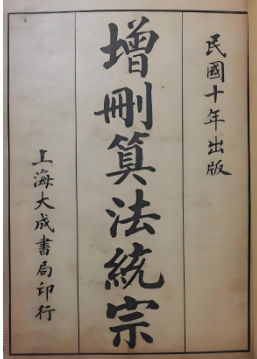 民國十年出版
增刪算法統宗
上海大成書局印行